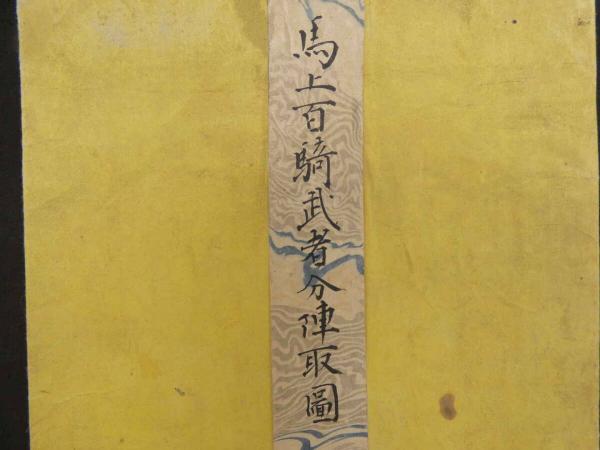 馬上百騎武者分陣取圖